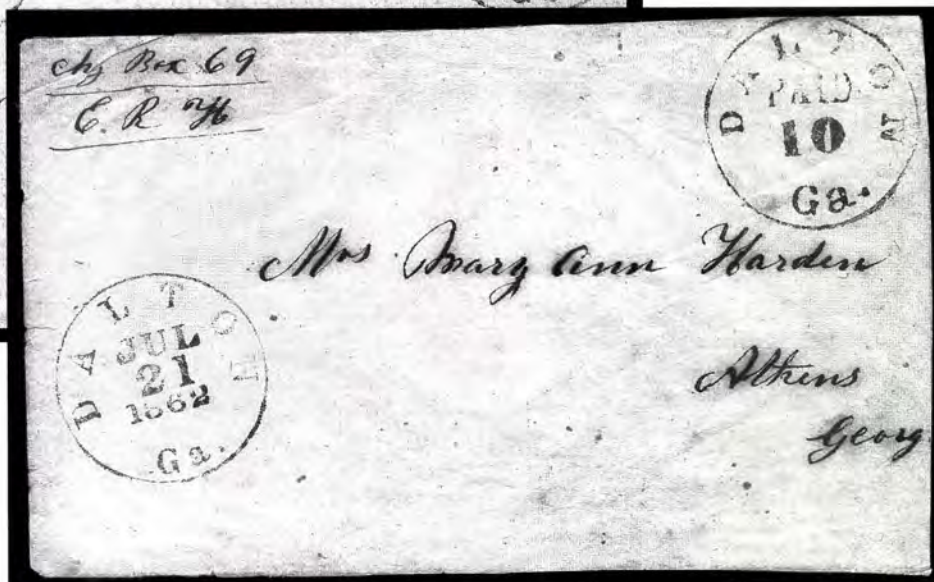 chg Box 69
E. R H
DALTON
PAID
10
Ga.
Mrs Mary Ann Harden
Athens
Georg
DALTON
JUL
21
1862
Ga.